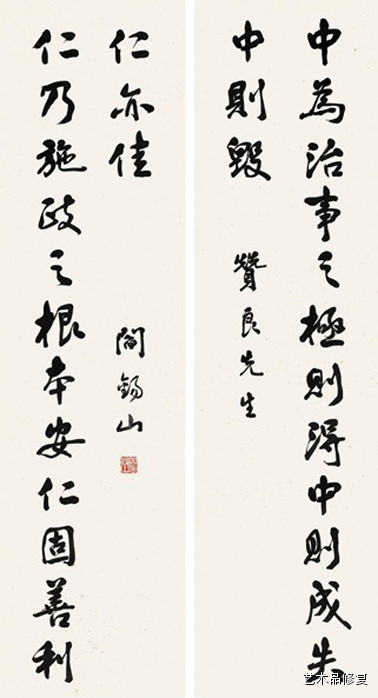 中為治事之極則得中則成失
中則毀
贊良先生
仁乃施政之根本安仁固善利
仁亦佳
閻錫山
艺术品修复